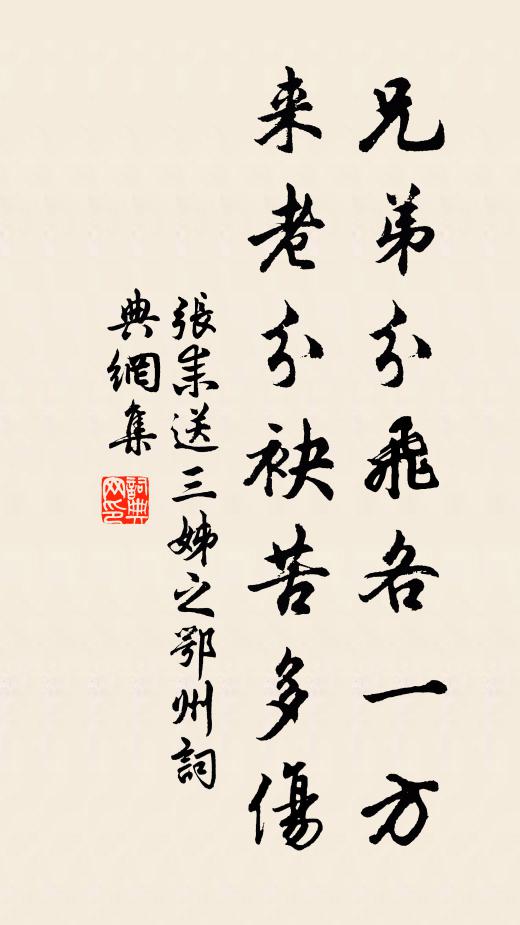 兄弟分飛各一方
来老分袂苦多傷
張耒送三姊之鄂州詞
典網集
詞典
网印